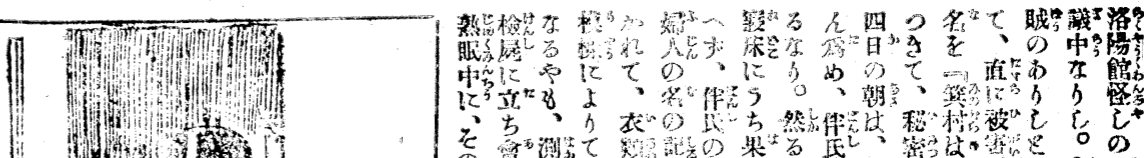 洛陽館怪しの
議中なりし。
賊のありしと
て、直に被害
名を『箕村は
つきて、秘密
四日の朝は、
ん為め、伴氏
るなり。然る
寝床にうち果
へず、伴氏の
婦人の名の記
かれて、衣類
模様によりて
なるやも、測
検屍に立ち會
熟眠中に、その